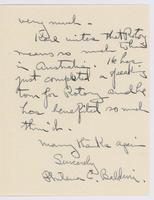 very much.
Bill writes that Rotary
means so much to him
in Australia. He has
just completed a speaking
tour for Rotary and he
has benefited so much
thru it.
Many thanks again
Sincerely
C. Baldwin.